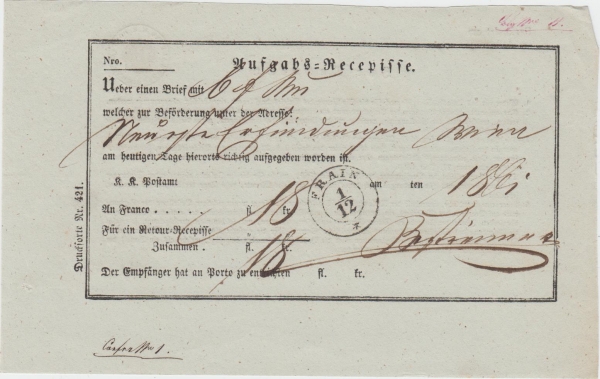 Nro.
Aufgabs-Recepisse.
Ueber einen Brief mit 6 f
welcher zur Beförderung unter der Adresse:
Neueste Erfindungen Wien
am heutigen Tage hierorts richtig aufgegeben worden ist.
K. K. Postamt FRAIN 1/12 am ten 186
An Franco . . . . . . fl. 18 kr.
Für ein Retour-Recepisse
Zusammen . fl. 18 kr.
Der Empfänger hat an Porto zu entrichten fl. kr.
Drucksorte Nr. 421.